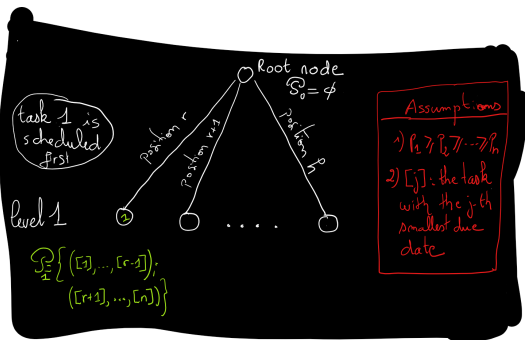 Root node
S₀ = ϕ
task 1 is
scheduled
first
Position r
Position r+1
Position h
level 1
1
. . . .
S₁={([1],...,[r-1]);
([r+1],...,[n])}
Assumptions
1) P₁ ⩾ P₂ ⩾ ... ⩾ Pₙ
2) [j]: the task
with the j-th
smallest due
date